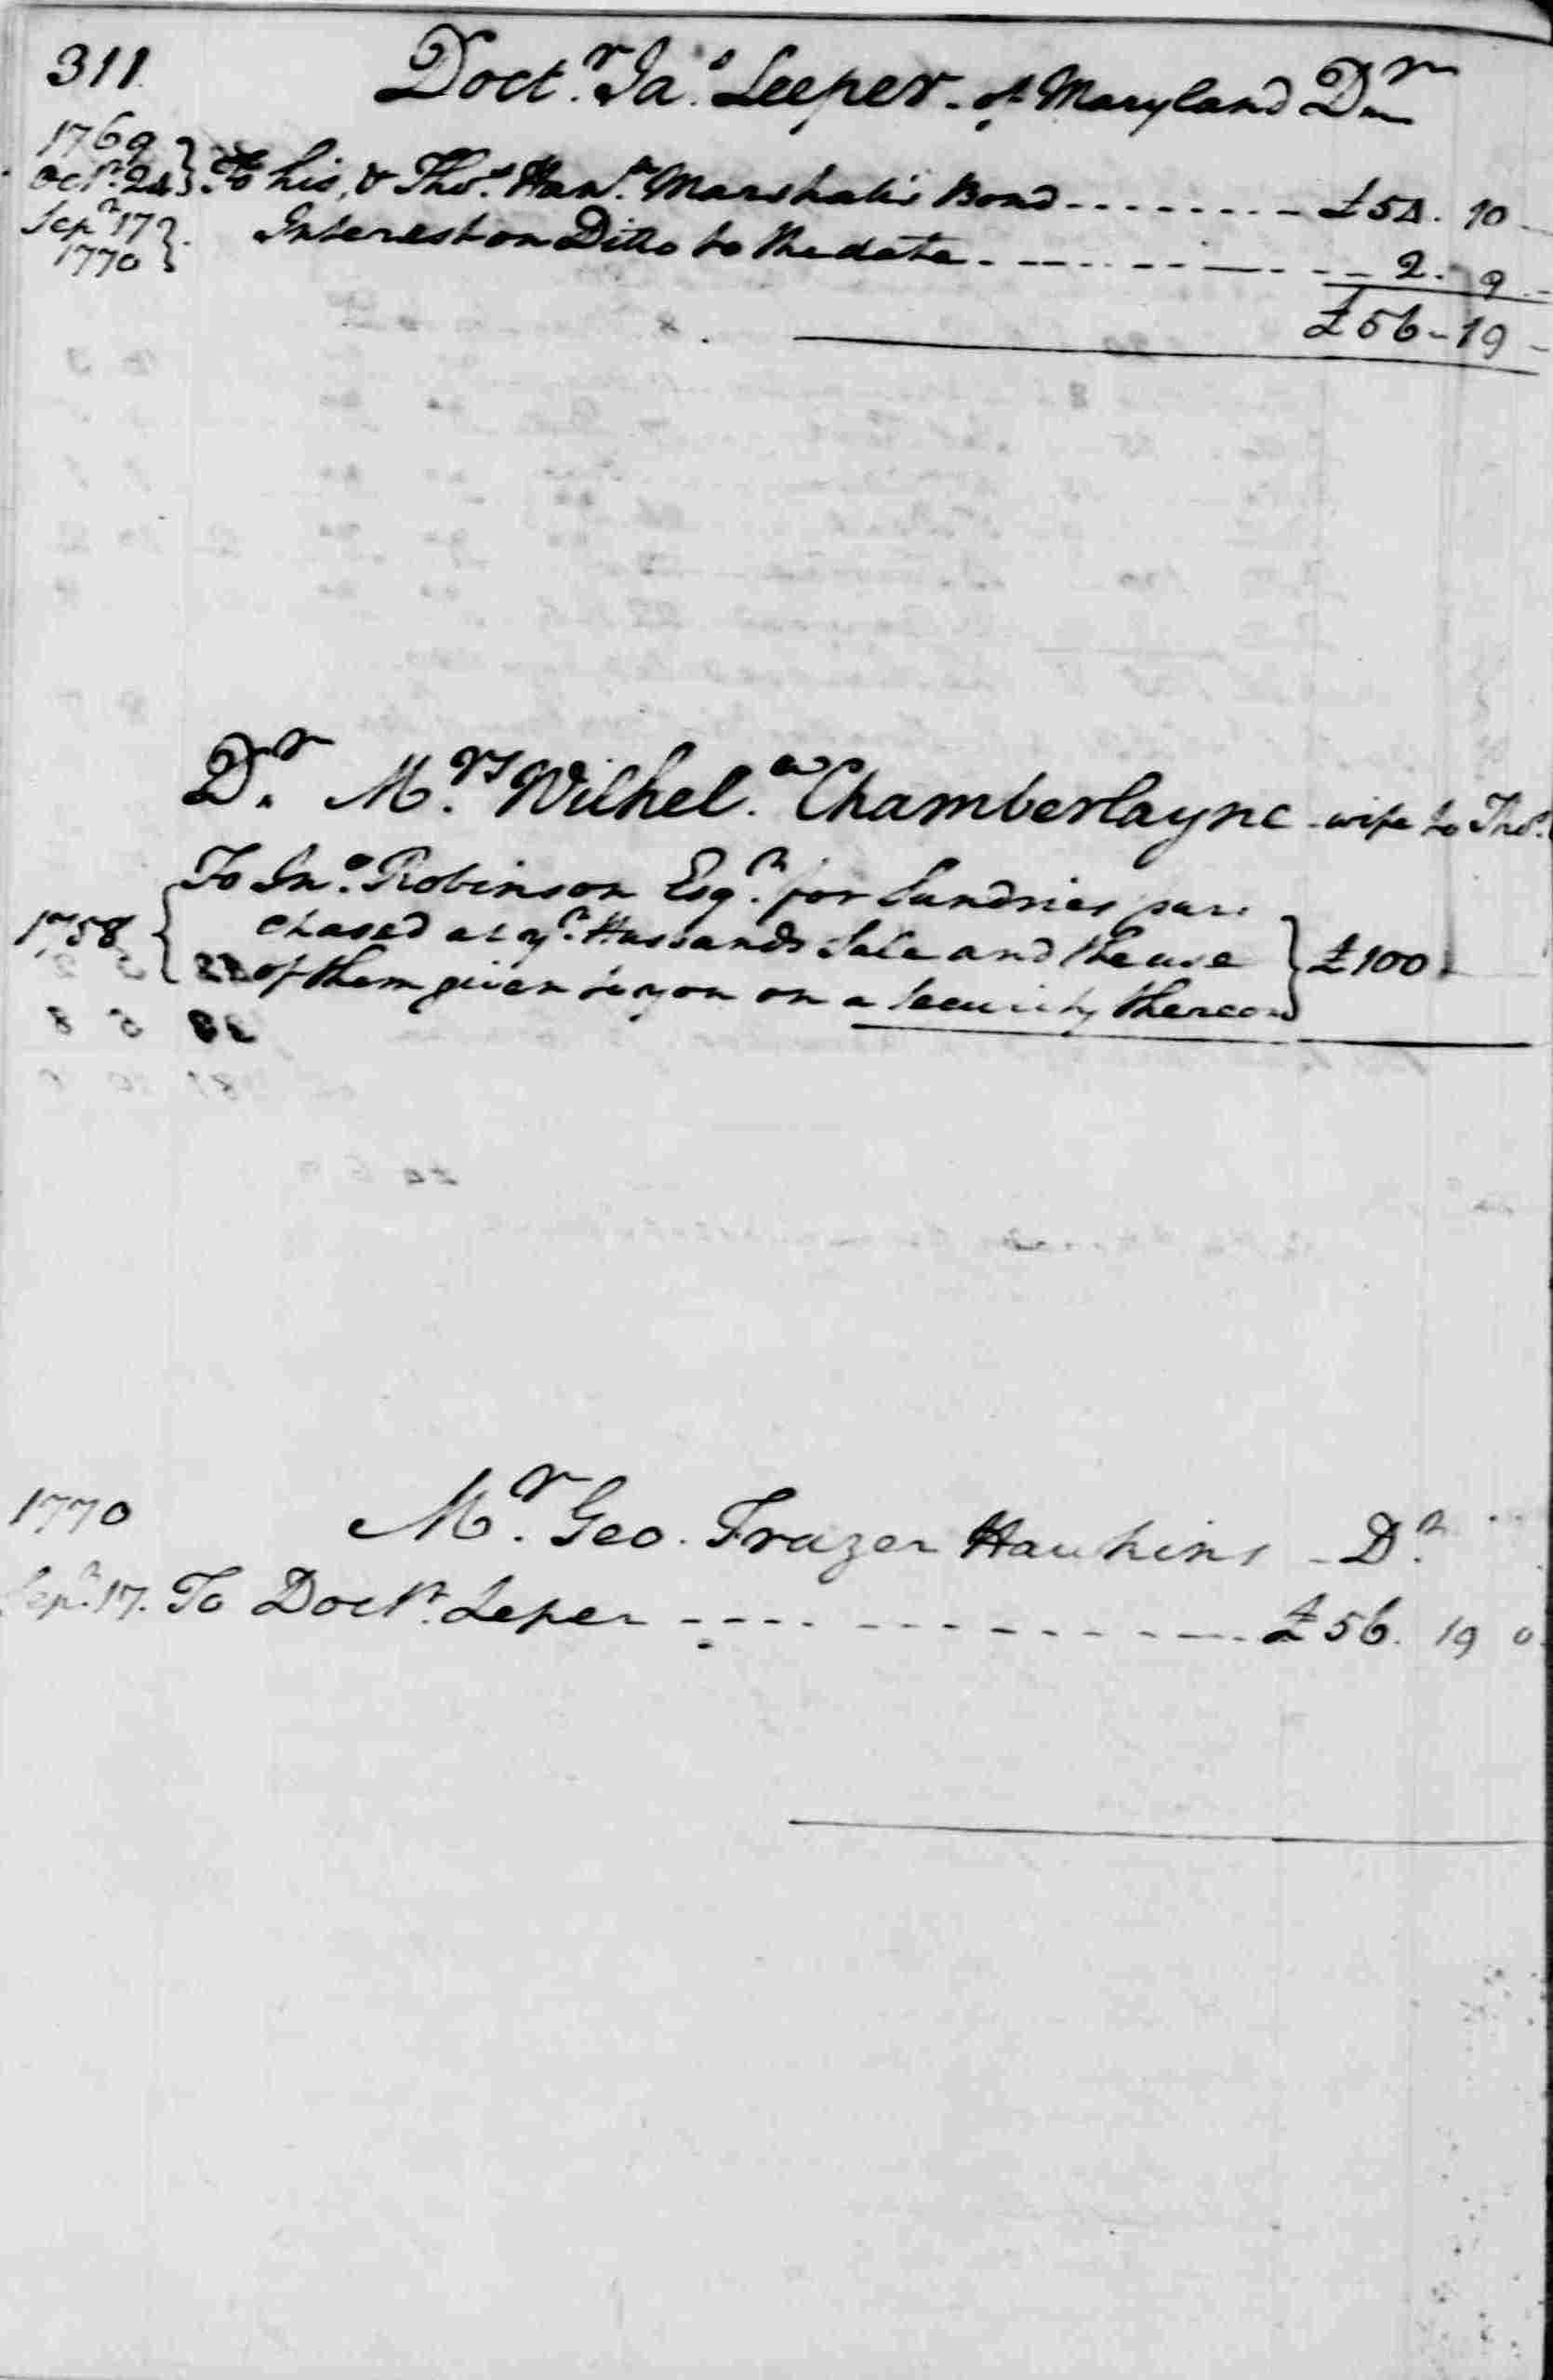 311
Doct.r Ja.s Leeper - of Maryland Dr
1769
Oct.r 24 } To his, & Tho.s Han.n Marshall's Bond - - - - - - - - - £54. 10 -
Sep.r 17
1770 } Interest on Ditto to the date - - - - - - - - - - - 2. 9 -
£56 - 19 -
D.r M.rs Wilhel.a Chamberlayne - wife to Tho.s
1758 { To Jn.o Robinson Esq.r for Sundries pur
chased at y.r Husbands Sale and the use } £100
of them given to you on a Security thereon
1770 M.r Geo. Frazer Hawkins - D.r
Sep.r 17. To Doct.r Leper - - - - - - - - - - - £56. 19 0